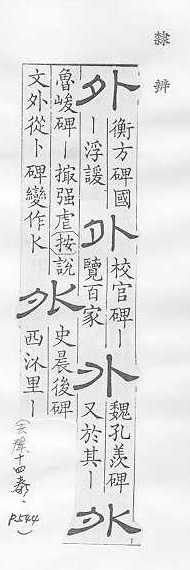 隸辨
外
衡方碑國
丨浮諼
外
校官碑丨
覽百家
外
魏孔羨碑
又於其丨
外
魯峻碑丨掫强虐按說
文外從卜碑變作K
外
史晨後碑
西㳅里丨
(去聲十四泰、P.544)